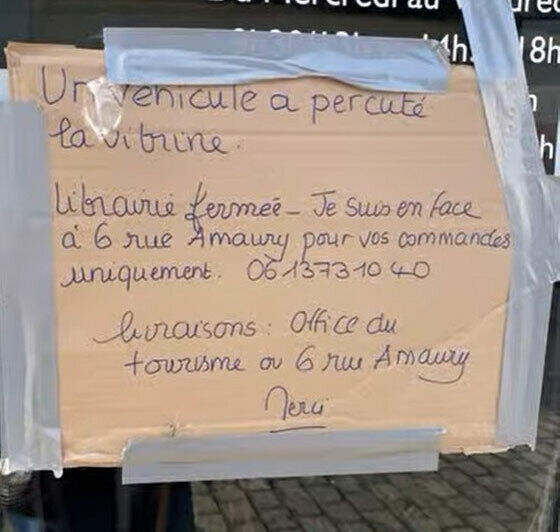 Mercredi au
8h
Un véhicule a percuté
la vitrine.
Librairie fermée - Je suis en face
à 6 rue Amaury pour vos commandes
uniquement. 06 13 73 10 40
Livraisons : Office du
tourisme ou 6 rue Amaury
Merci